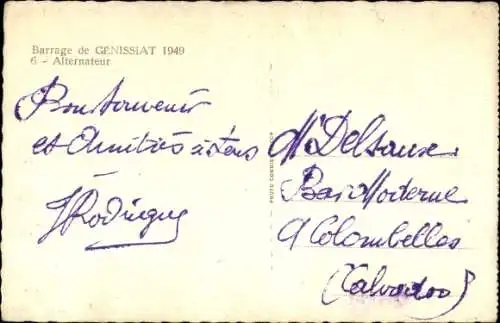 Barrage de GÉNISSIAT 1949
6 - Alternateur
Bon souvenir
et Amitiés à tous
J Rodrigues
Mr Delsause
Bar Moderne
A Colombelles
(Calvados)